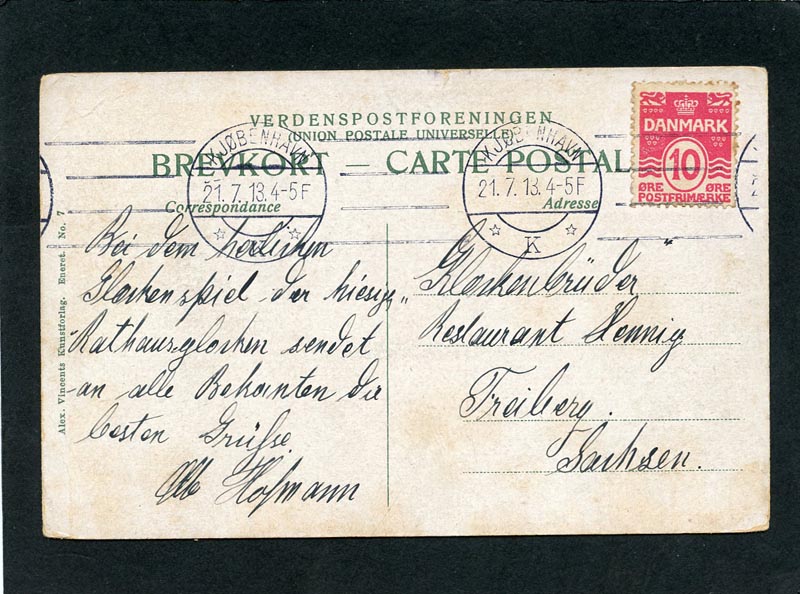 VERDENSPOSTFORENINGEN
(UNION POSTALE UNIVERSELLE)
BREVKORT — CARTE POSTALE
Correspondance
Adresse
KJØBENHAVN
21.7.13.4-5F
K
KJØBENHAVN
21.7.13.4-5F
K
DANMARK
10
ØRE ØRE
POSTFRIMÆRKE
Alex. Vincents Kunstforlag. Eneret. No. 7
Bei dem herlichen
Glockenspiel der hiesig
Rathausglocken sendet
an alle Bekanten die
besten Grüße
Hofmann
„Glockenbrüder"
Restaurant Hennig
Freiberg.
Sachsen.